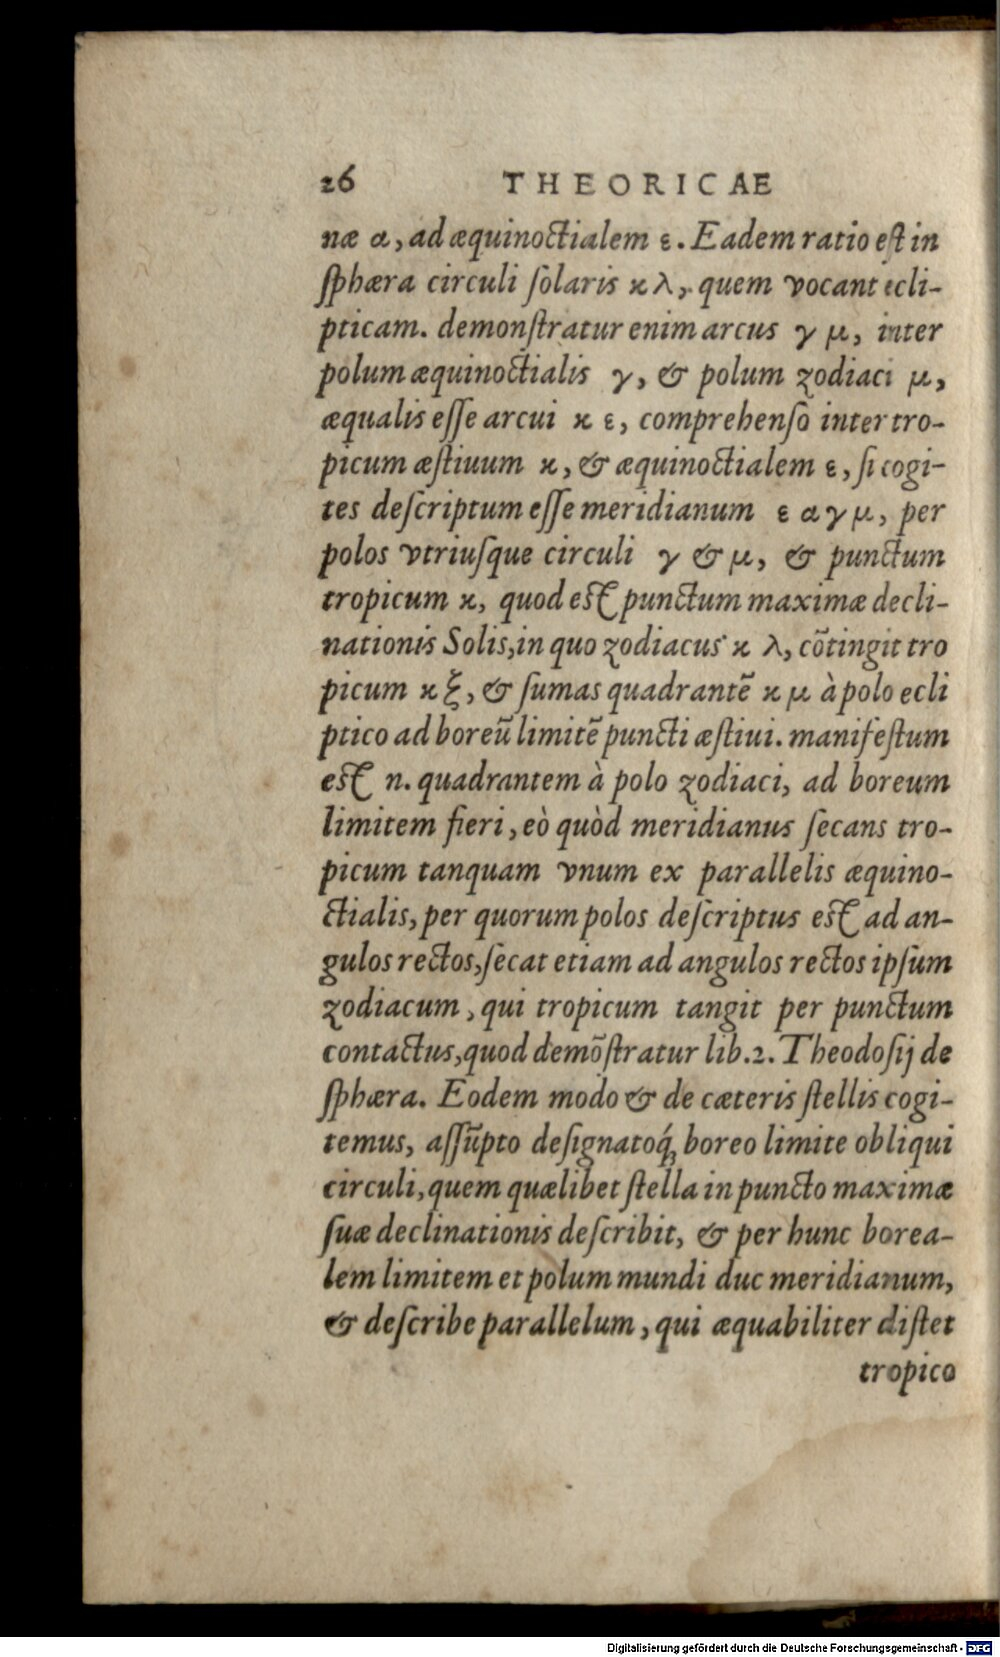 26 THEORICAE
næ α, ad æquinoctialem ε. Eadem ratio eſt in
ſphæra circuli ſolaris κ λ, quem vocant ecli-
pticam. demonſtratur enim arcus γ μ, inter
polum æquinoctialis γ, & polum zodiaci μ,
æqualis eſſe arcui κ ε, comprehenſo inter tro-
picum æſtiuum κ, & æquinoctialem ε, ſi cogi-
tes deſcriptum eſſe meridianum ε α γ μ, per
polos vtriuſque circuli γ & μ, & punctum
tropicum κ, quod eſt punctum maximæ decli-
nationis Solis, in quo zodiacus κ λ, cõtingit tro
picum κ ξ, & ſumas quadrantẽ κ μ à polo ecli
ptico ad boreũ limitẽ puncti æſtiui. manifeſtum
eſt n. quadrantem à polo zodiaci, ad boreum
limitem fieri, eò quòd meridianus ſecans tro-
picum tanquam vnum ex parallelis æquino-
ctialis, per quorum polos deſcriptus eſt ad an-
gulos rectos, ſecat etiam ad angulos rectos ipſum
zodiacum, qui tropicum tangit per punctum
contactus, quod demõſtratur lib. 2. Theodoſij de
ſphæra. Eodem modo & de cæteris ſtellis cogi-
temus, aſſũpto deſignatoq́; boreo limite obliqui
circuli, quem quælibet ſtella in puncto maximæ
ſuæ declinationis deſcribit, & per hunc borea-
lem limitem et polum mundi duc meridianum,
& deſcribe parallelum, qui æquabiliter diſtet
tropico
Digitalisierung gefördert durch die Deutsche Forschungsgemeinschaft - DFG